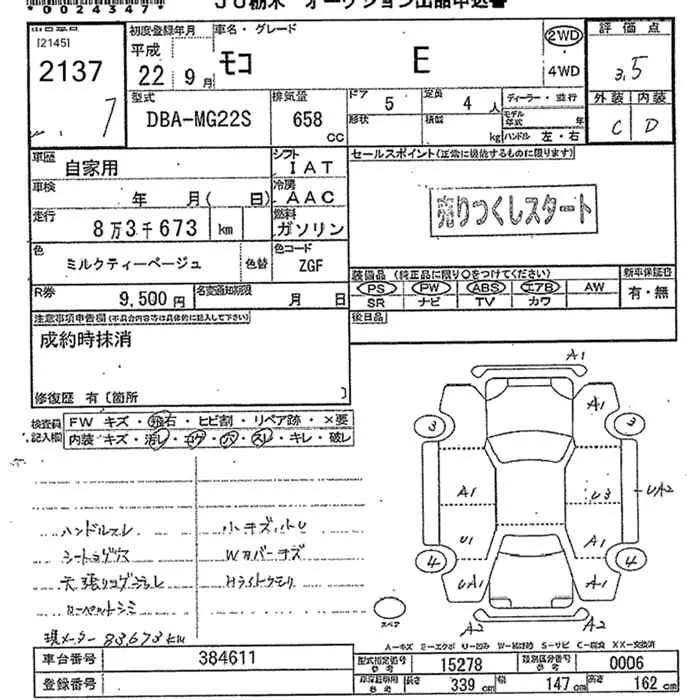 *0024347*
JU栃木 オークション出品申込書
出品番号
[2145]
2137
7
初度登録年月
平成
22年 9月
車名・グレード
モコ E
2WD
4WD
評価点
3.5
外装 内装
C D
型式
DBA-MG22S
排気量
658
CC
ドア
5
定員
4 人
形状
積載
kg
ディーラー・並行
モデル年式 年
ハンドル 左・右
車歴
自家用
シフト
IAT
車検
年 月( 日)
冷房
AAC
走行
8万3千673 km
燃料
ガソリン
色
ミルクティーベージュ
色替
色コード
ZGF
R券
9,500円
名変通知期限
月 日
セールスポイント(正常に機能するものに限ります)
売りつくしスタート
装備品 (純正品に限り〇をつけてください)
新車保証書
PS PW ABS エアB AW
SR ナビ TV カワ
有・無
後日品
注意事項申告欄(不具合内容等は具体的に記入して下さい)
成約時抹消
修復歴 有〔箇所 〕
検査員記入欄
FW キズ・飛石・ヒビ割・リペア跡・×要
内装 キズ・汚レ・コゲ・穴・スレ・キレ・破レ
ハンドルスレ
小キズ小U
シートコゲ穴
Wカバーキズ
天張りコゲ
Hライトクモリ
カーペットシミ
現メーター 83,673km
A1
A1
3
3
A1
U3
UA2
U1
A1
4
4
UA1
A1
A2
A2
スペア
A-キズ E-エクボ U-凹み W-補修跡 S-サビ C-腐食 XX-交換済
車台番号
384611
登録番号
型式指定番号
参考
15278
類別区分番号
参考
0006
車検証明用
参考
長さ
339 cm
幅
147 cm
高さ
162 cm